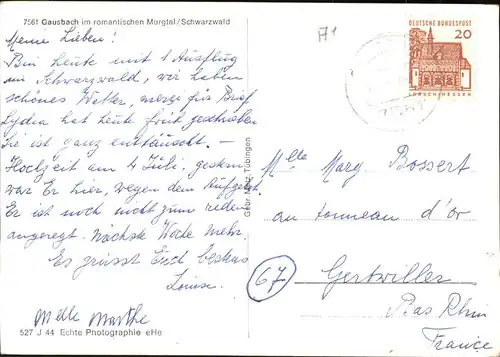 7561 Gausbach im romantischen Murgtal/Schwarzwald
Meine Lieben!
Bin heute mit 1 Ausflug
im Schwarzwald, wir haben
schönes Wetter, merçi für Brief
Lydia hat heute früh geschrieben
Sie ist ganz enttäuscht. —
Hochzeit am 4 Juli, gestern
war Er hier, wegen dem Aufgebot.
Er ist noch nicht zum reden
angeregt. Nächste Woche mehr
Es grüsst Euch bestens
Louise.
Melle Marthe
527 J 44 Echte Photographie eHe
Gebr. Metz, Tübingen
A1
DEUTSCHE BUNDESPOST
20
LORSCH/HESSEN
Mlle Marg Bossert
au tonneau d'or
67
Gertwiller
Bas Rhin
France